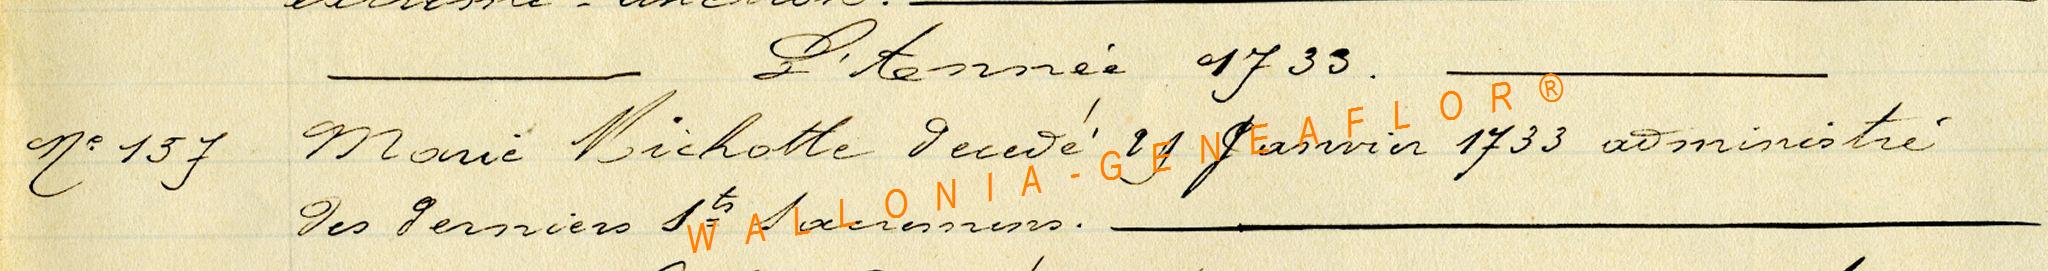 extreme-onction.
L'Année 1733.
N° 157 Marie Michotte decedé 21 Janvier 1733 administré
des derniers Sts Sacremens.
WALLONIA-GENEAFLOR®